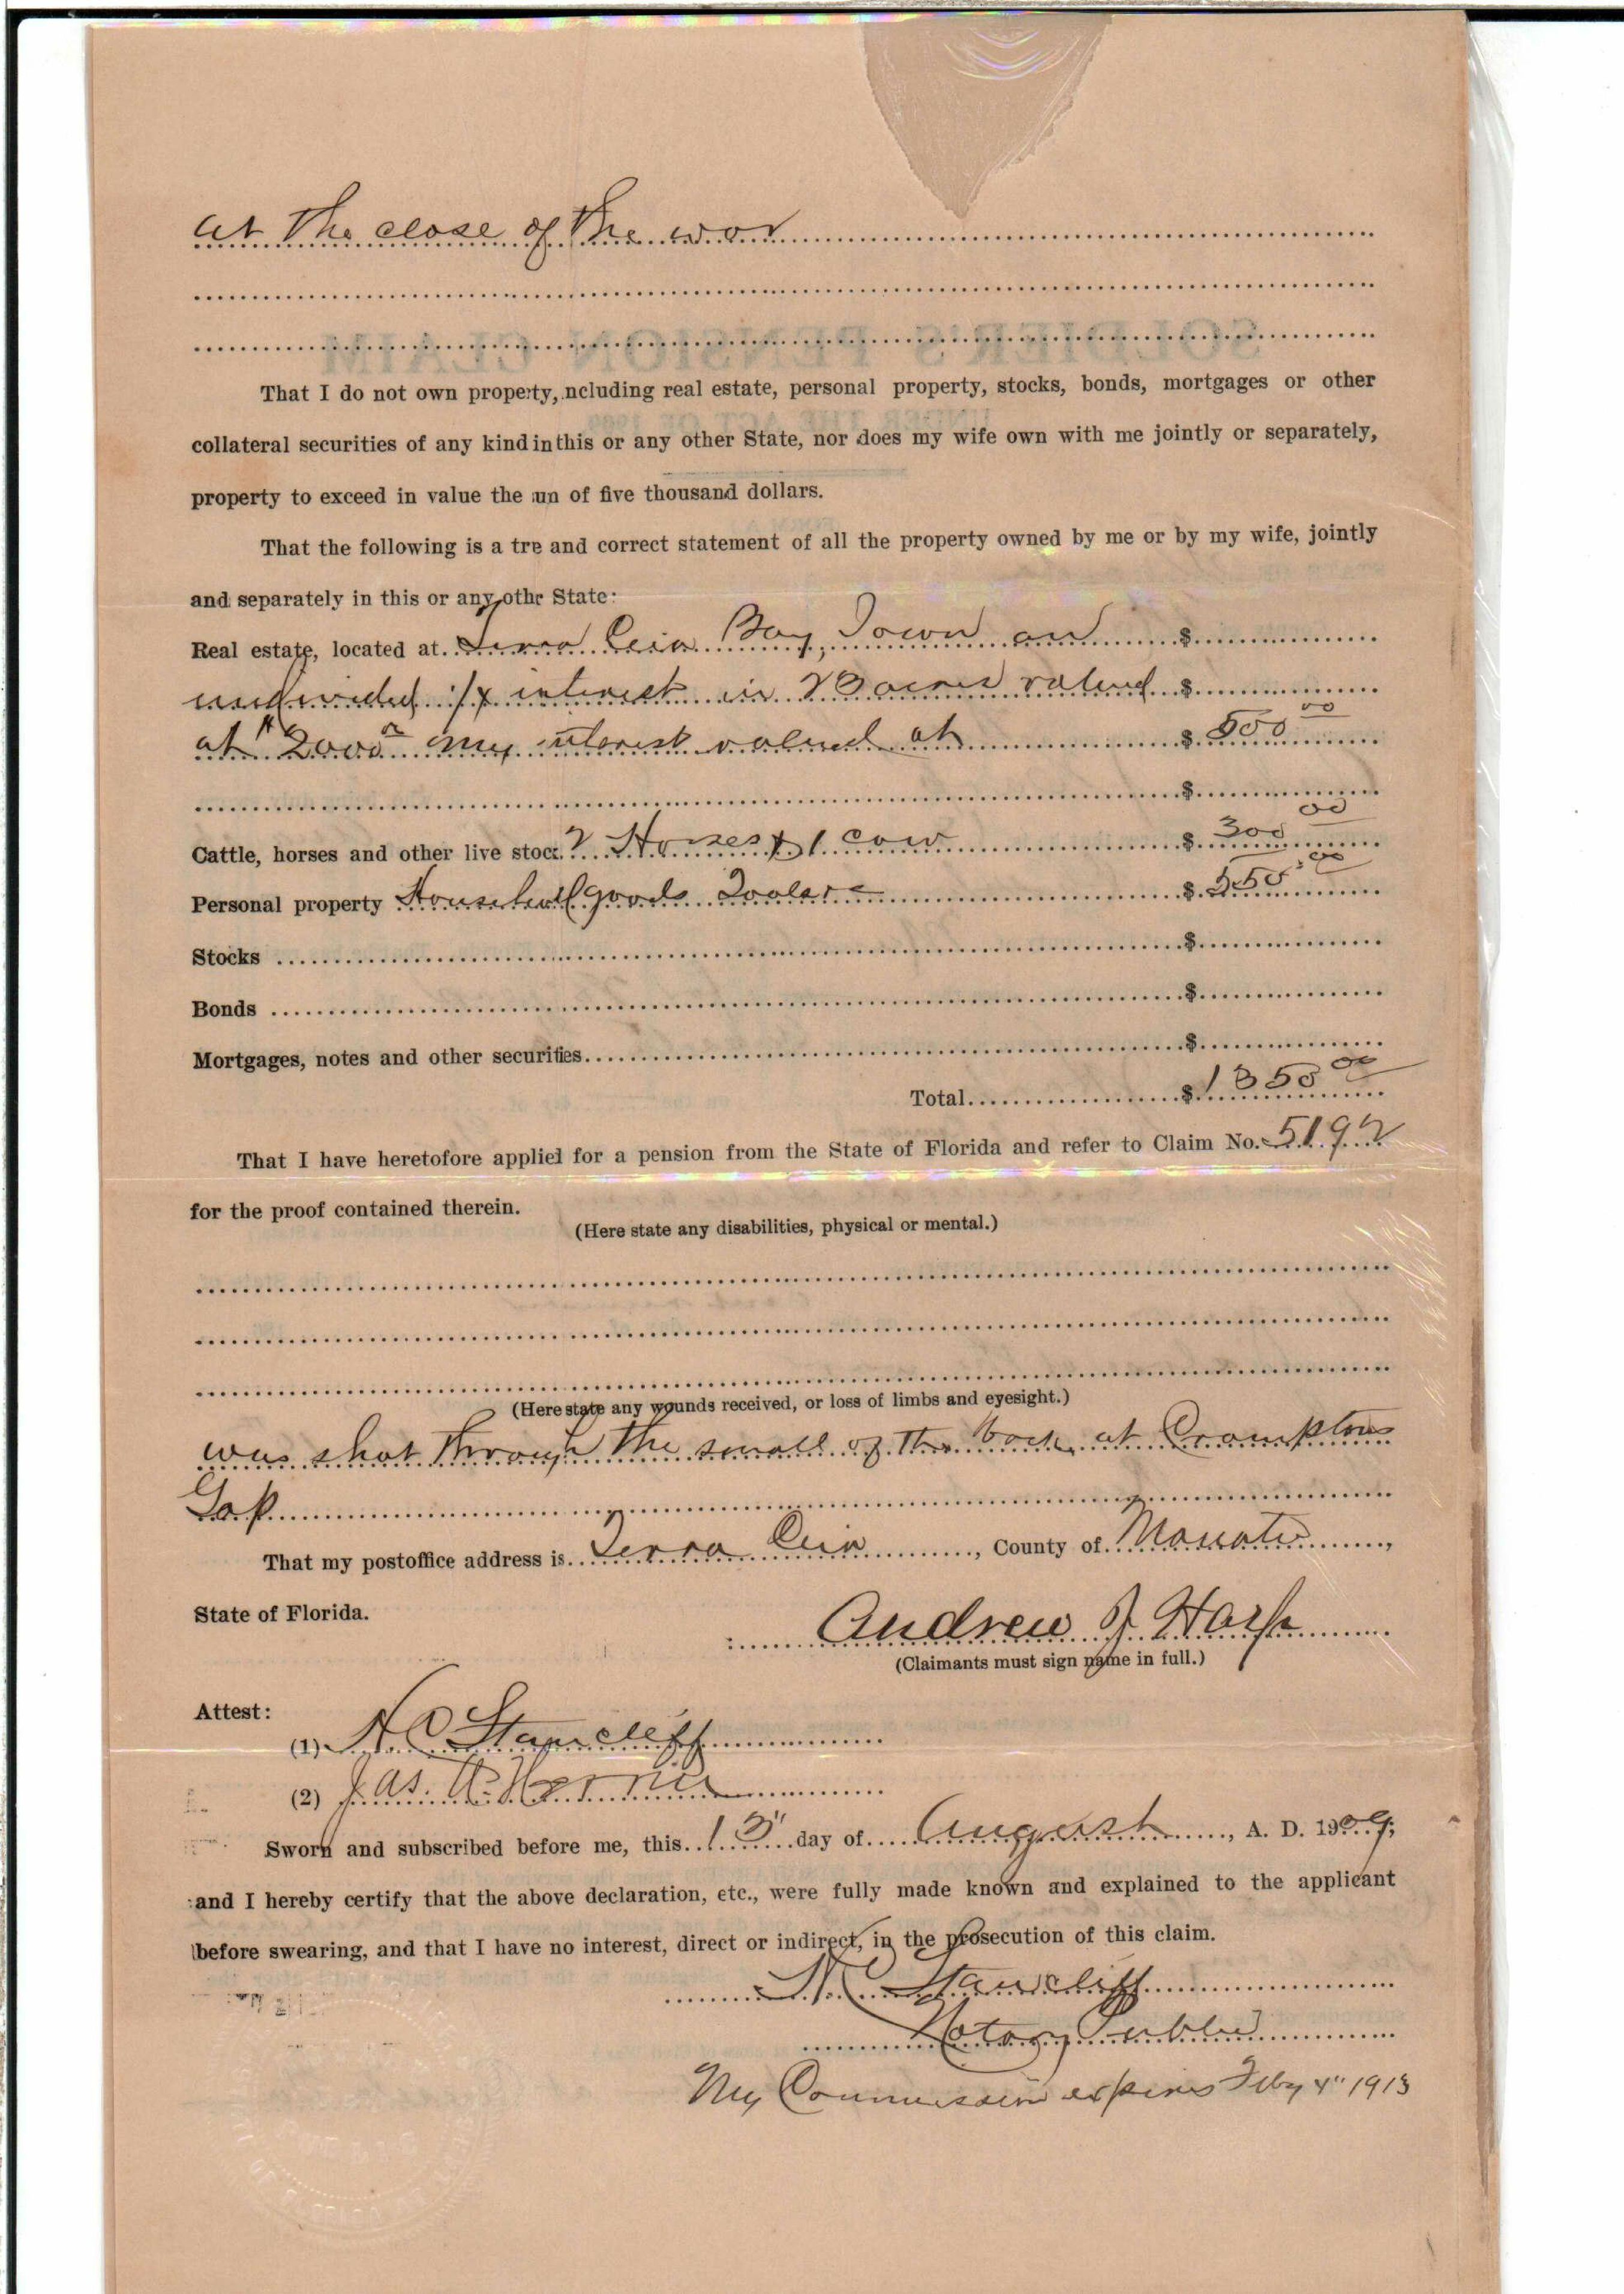 at the close of the war
SOLDIER'S PENSION CLAIM
That I do not own property, ncluding real estate, personal property, stocks, bonds, mortgages or other
collateral securities of any kind in this or any other State, nor does my wife own with me jointly or separately,
property to exceed in value the un of five thousand dollars.
That the following is a tre and correct statement of all the property owned by me or by my wife, jointly
and separately in this or any othr State:
Real estate, located at Terra Ceia Bay, I own an $
undivided 1/4 interest in 23 acres valued $
at $2000 00 my interest valued at $ 500 00
$
Cattle, horses and other live stock 2 Horses & 1 cow $ 300 00
Personal property Household goods Tools &c $ 550 00
Stocks $
Bonds $
Mortgages, notes and other securities $
Total $ 1350 00
That I have heretofore applied for a pension from the State of Florida and refer to Claim No. 5192
for the proof contained therein.
(Here state any disabilities, physical or mental.)
(Here state any wounds received, or loss of limbs and eyesight.)
was shot through the small of the back at Cramptons
Gap
That my postoffice address is Terra Ceia, County of Manatee,
State of Florida.
Andrew J Harp
(Claimants must sign name in full.)
Attest:
(1) H C Stancliff
(2) Jas. A.
Sworn and subscribed before me, this 13" day of August, A. D. 1909;
and I hereby certify that the above declaration, etc., were fully made known and explained to the applicant
before swearing, and that I have no interest, direct or indirect, in the prosecution of this claim.
H C Stancliff
Notary Public
My Commission expires Feby 4" 1913